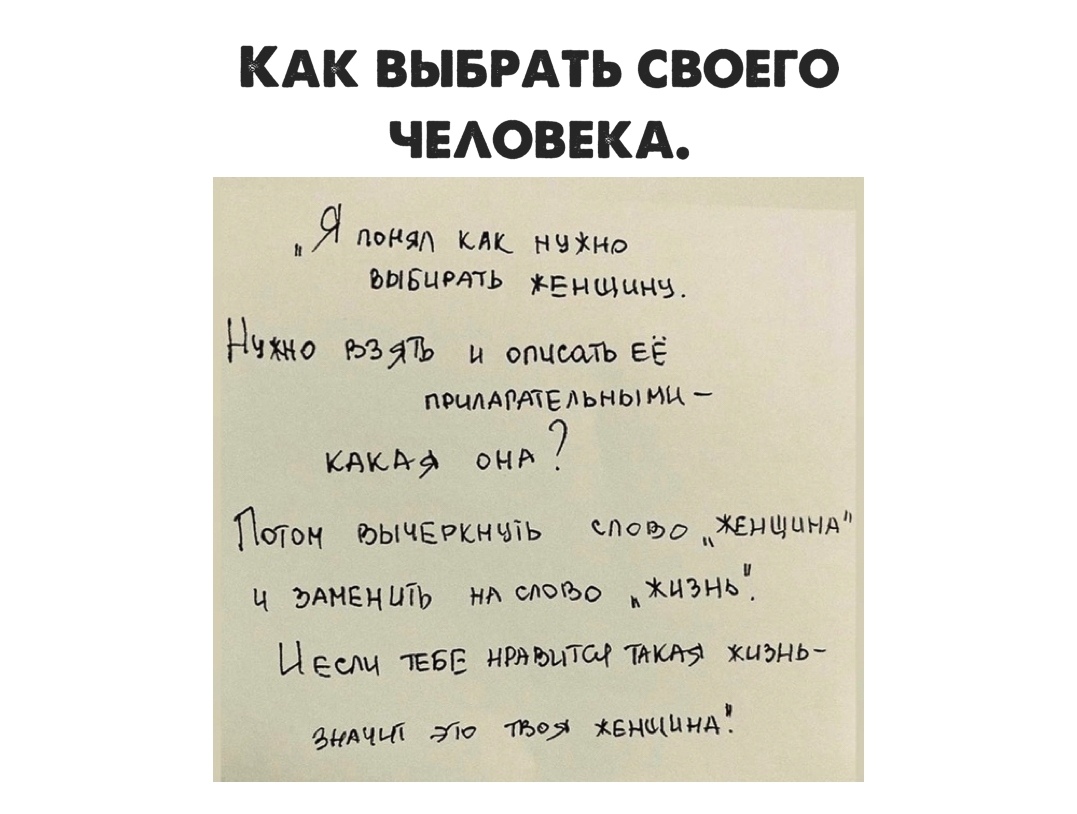 Как выбрать своего
человека.
„Я понял как нужно
выбирать женщину.
Нужно взять и описать её
приларательными –
какая она?
Потом вычеркнуть слово „женщина"
и заменить на слово „жизнь".
И если тебе нравится такая жизнь –
значит это твоя женщина".